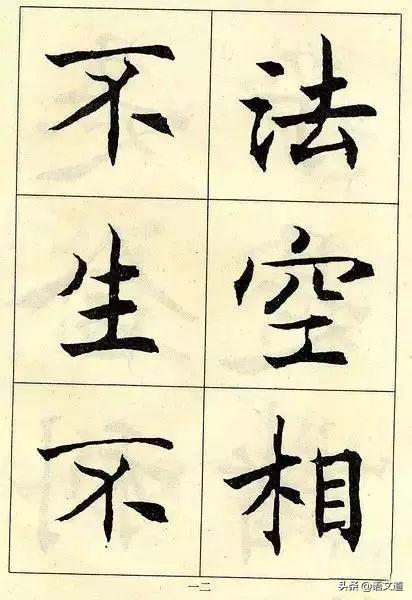 法空相
不生不
一二
头条@语文道